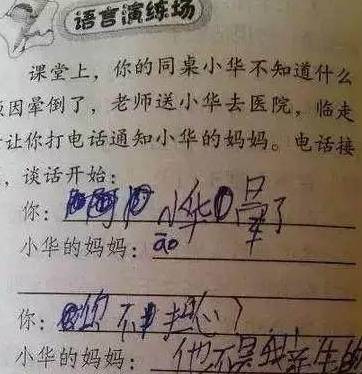 语言演练场
课堂上，你的同桌小华不知道什么
因晕倒了，老师送小华去医院，临走
让你打电话通知小华的妈妈。电话接
，谈话开始：
你：小华晕了
小华的妈妈：āo
你：你不担心？
小华的妈妈：他不是我亲生的